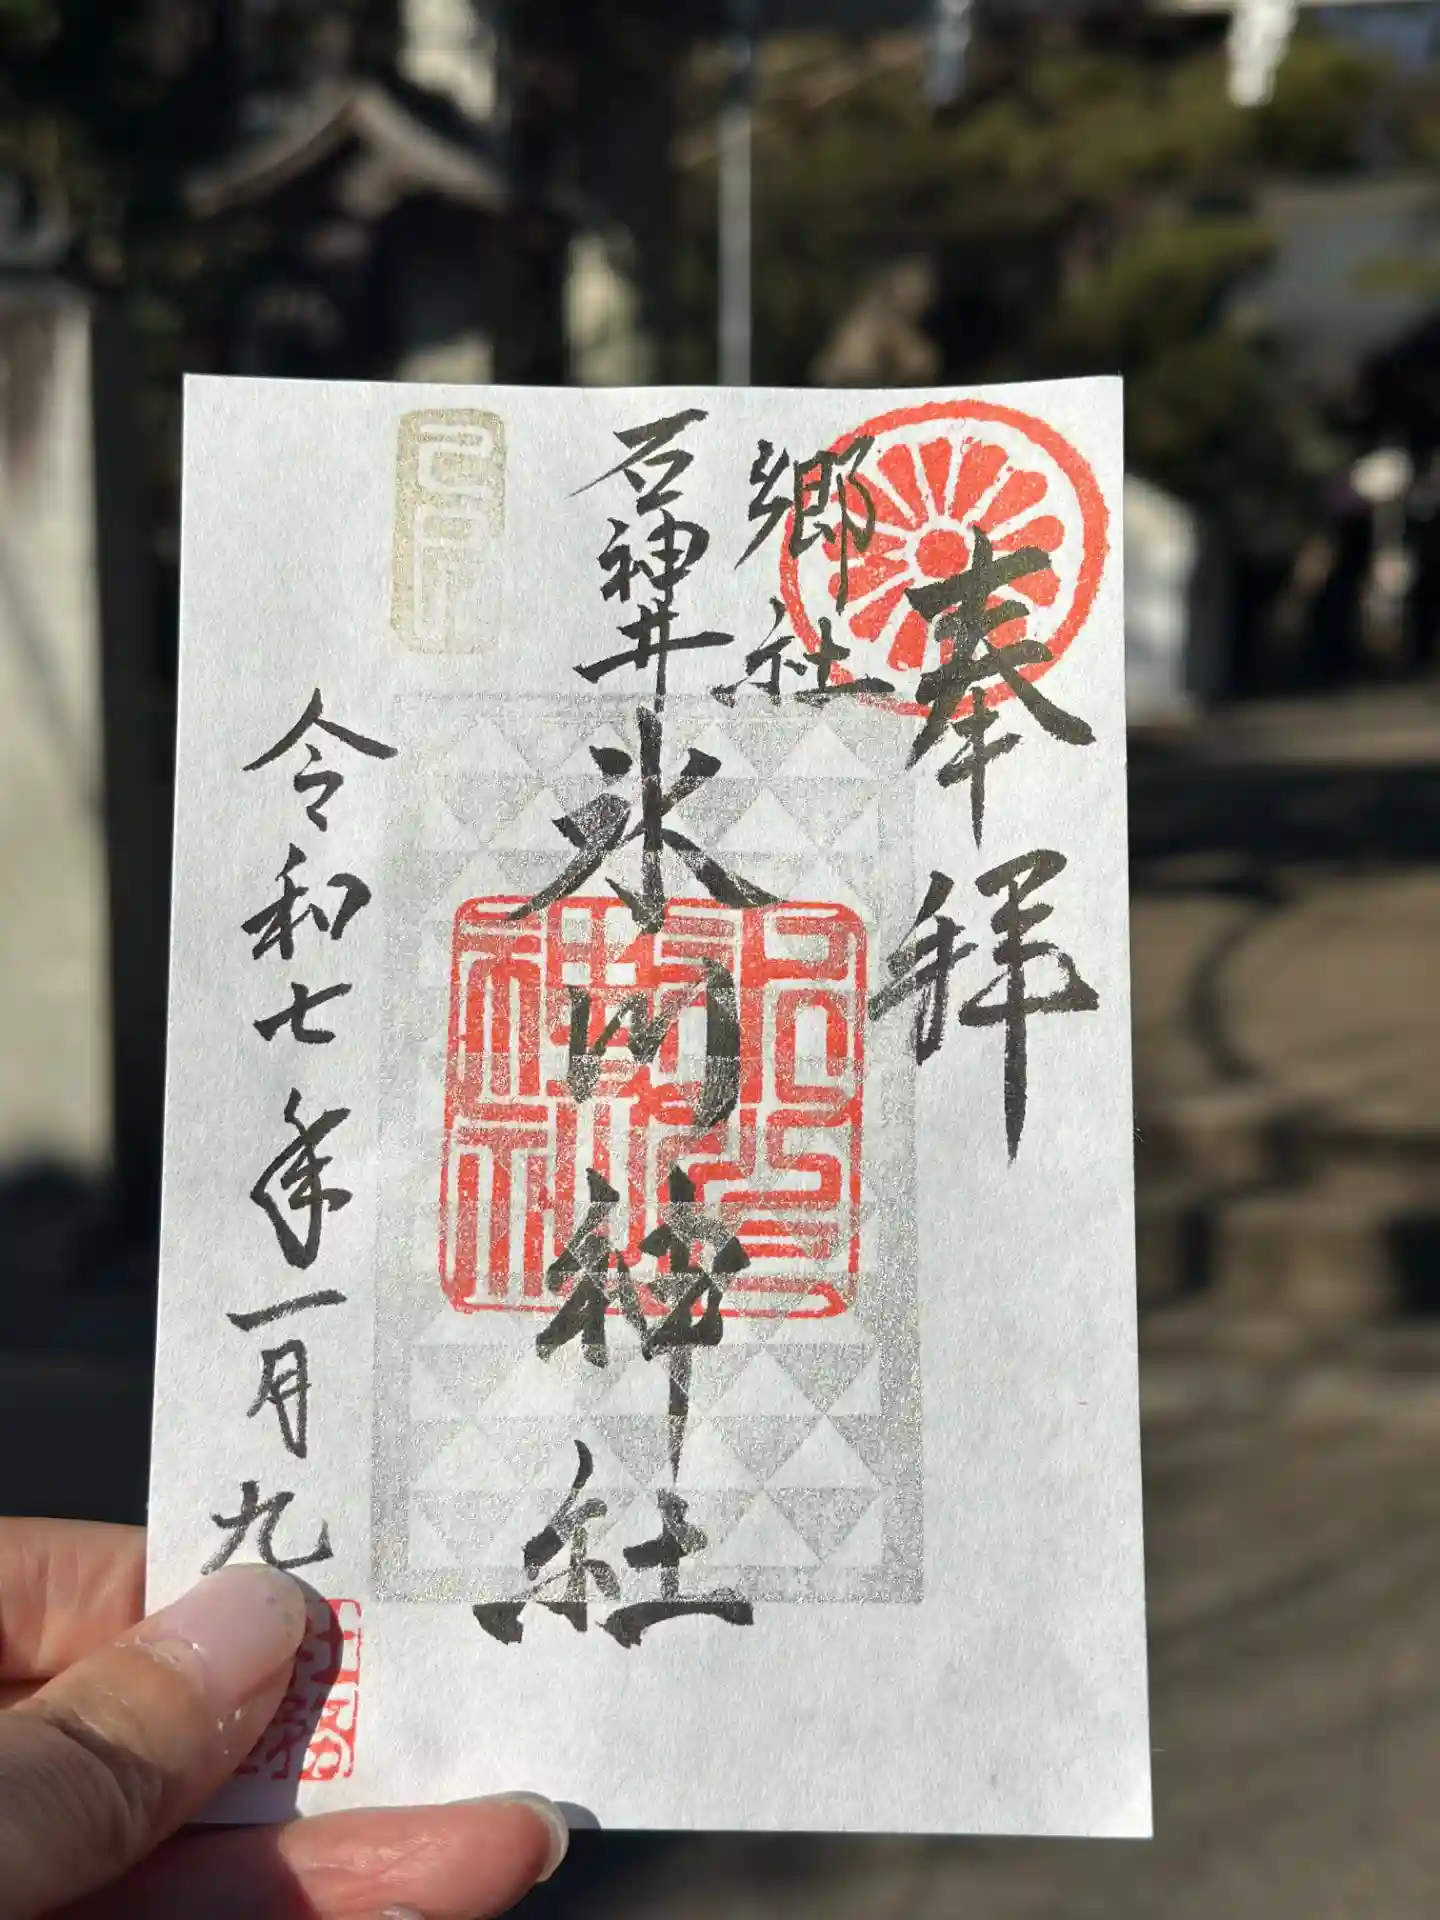 奉拝
郷社
石神井
氷川神社
己巳
令和七年一月九